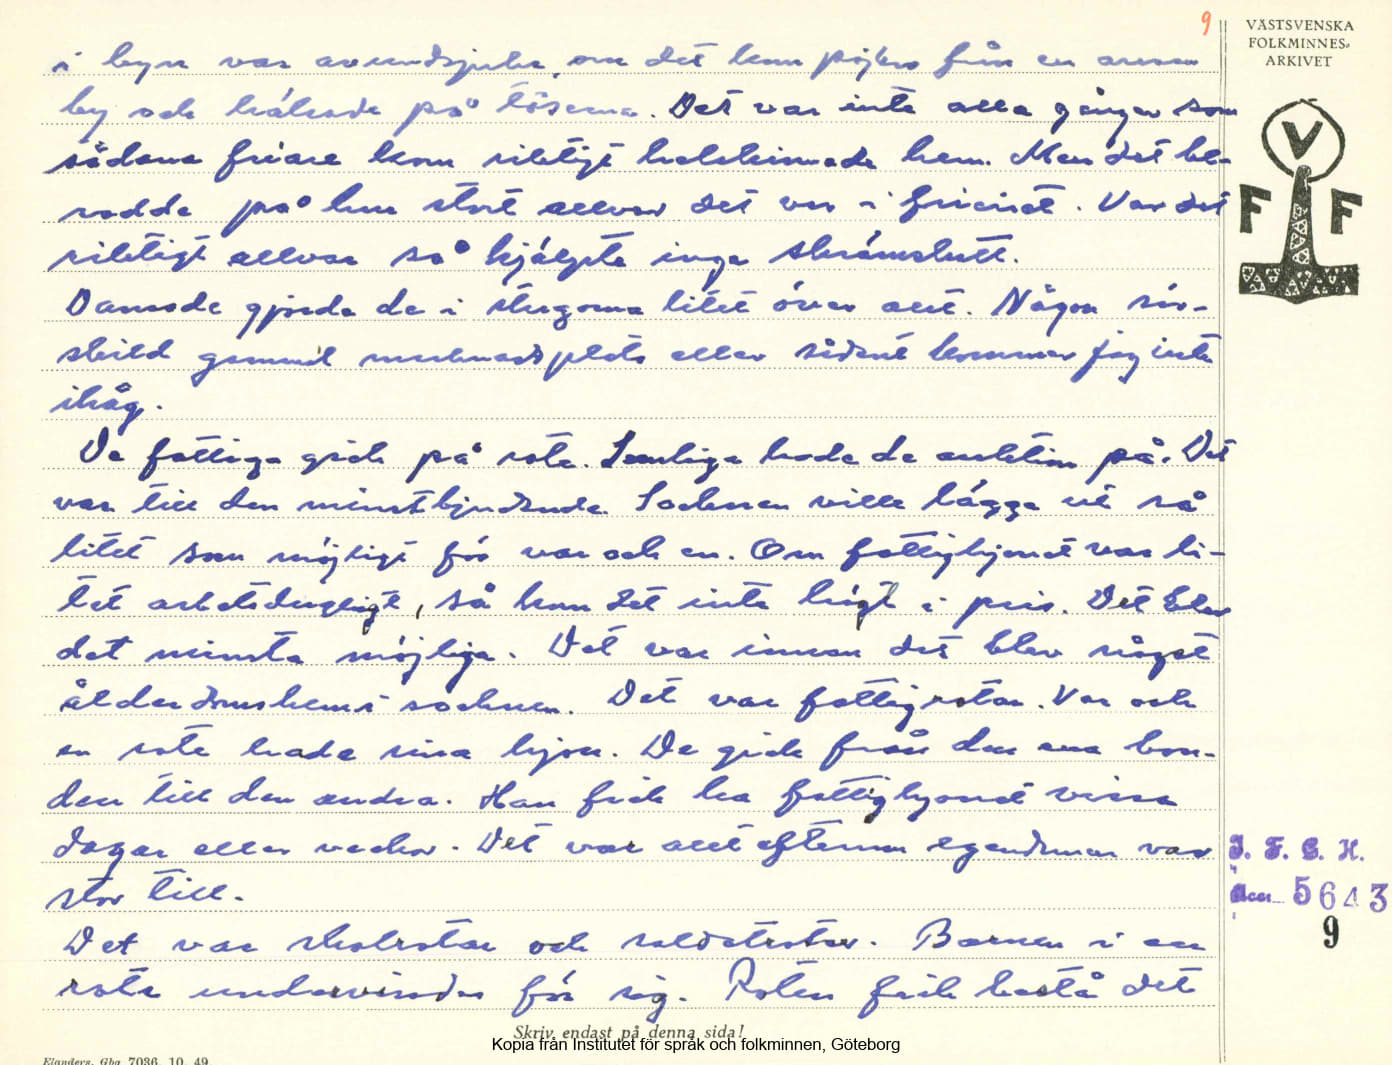 9
VÄSTSVENSKA
FOLKMINNES-
ARKIVET
V
F F
i byn var avundsjuka, om det kom pojkar från en annan
by och hälsade på töserna. Det var inte alla gånger som
sådana friare kom riktigt helskinnade hem. Men det be-
rodde på hur stort allvar det var i frieriet. Var det
riktigt allvar så hjälpte inga skrämskott.
Dansade gjorde de i stugorna litet över allt. Någon sär-
skild gammal marknadsplats eller sådant kommer jag inte
ihåg.
De fattiga gick på rote. Somliga hade de auktion på. Det
var till den minstbjudande. Socknen ville lägga ut så
litet som möjligt för var och en. Om fattighjonet var li-
tet arbetsdugligt, så kom det inte högt i pris. Det blev
det minsta möjliga. Det var innan det blev något
ålderdomshem i socknen. Det var fattigrotar. Var och
en rote hade sina hjon. De gick från den ena bon-
den till den andra. Han fick ha fattighjonet vissa
dagar eller veckor. Det var allt eftersom egendomen var
stor till.
Det var skolrotar och soldatrotar. Barnen i en
rote undervisades för sig. Roten fick bestå det
I. F. G. H.
Acc. 5643
9
Skriv endast på denna sida!
Kopia från Institutet för språk och folkminnen, Göteborg
Elanders, Gbg 7036. 10. 49.